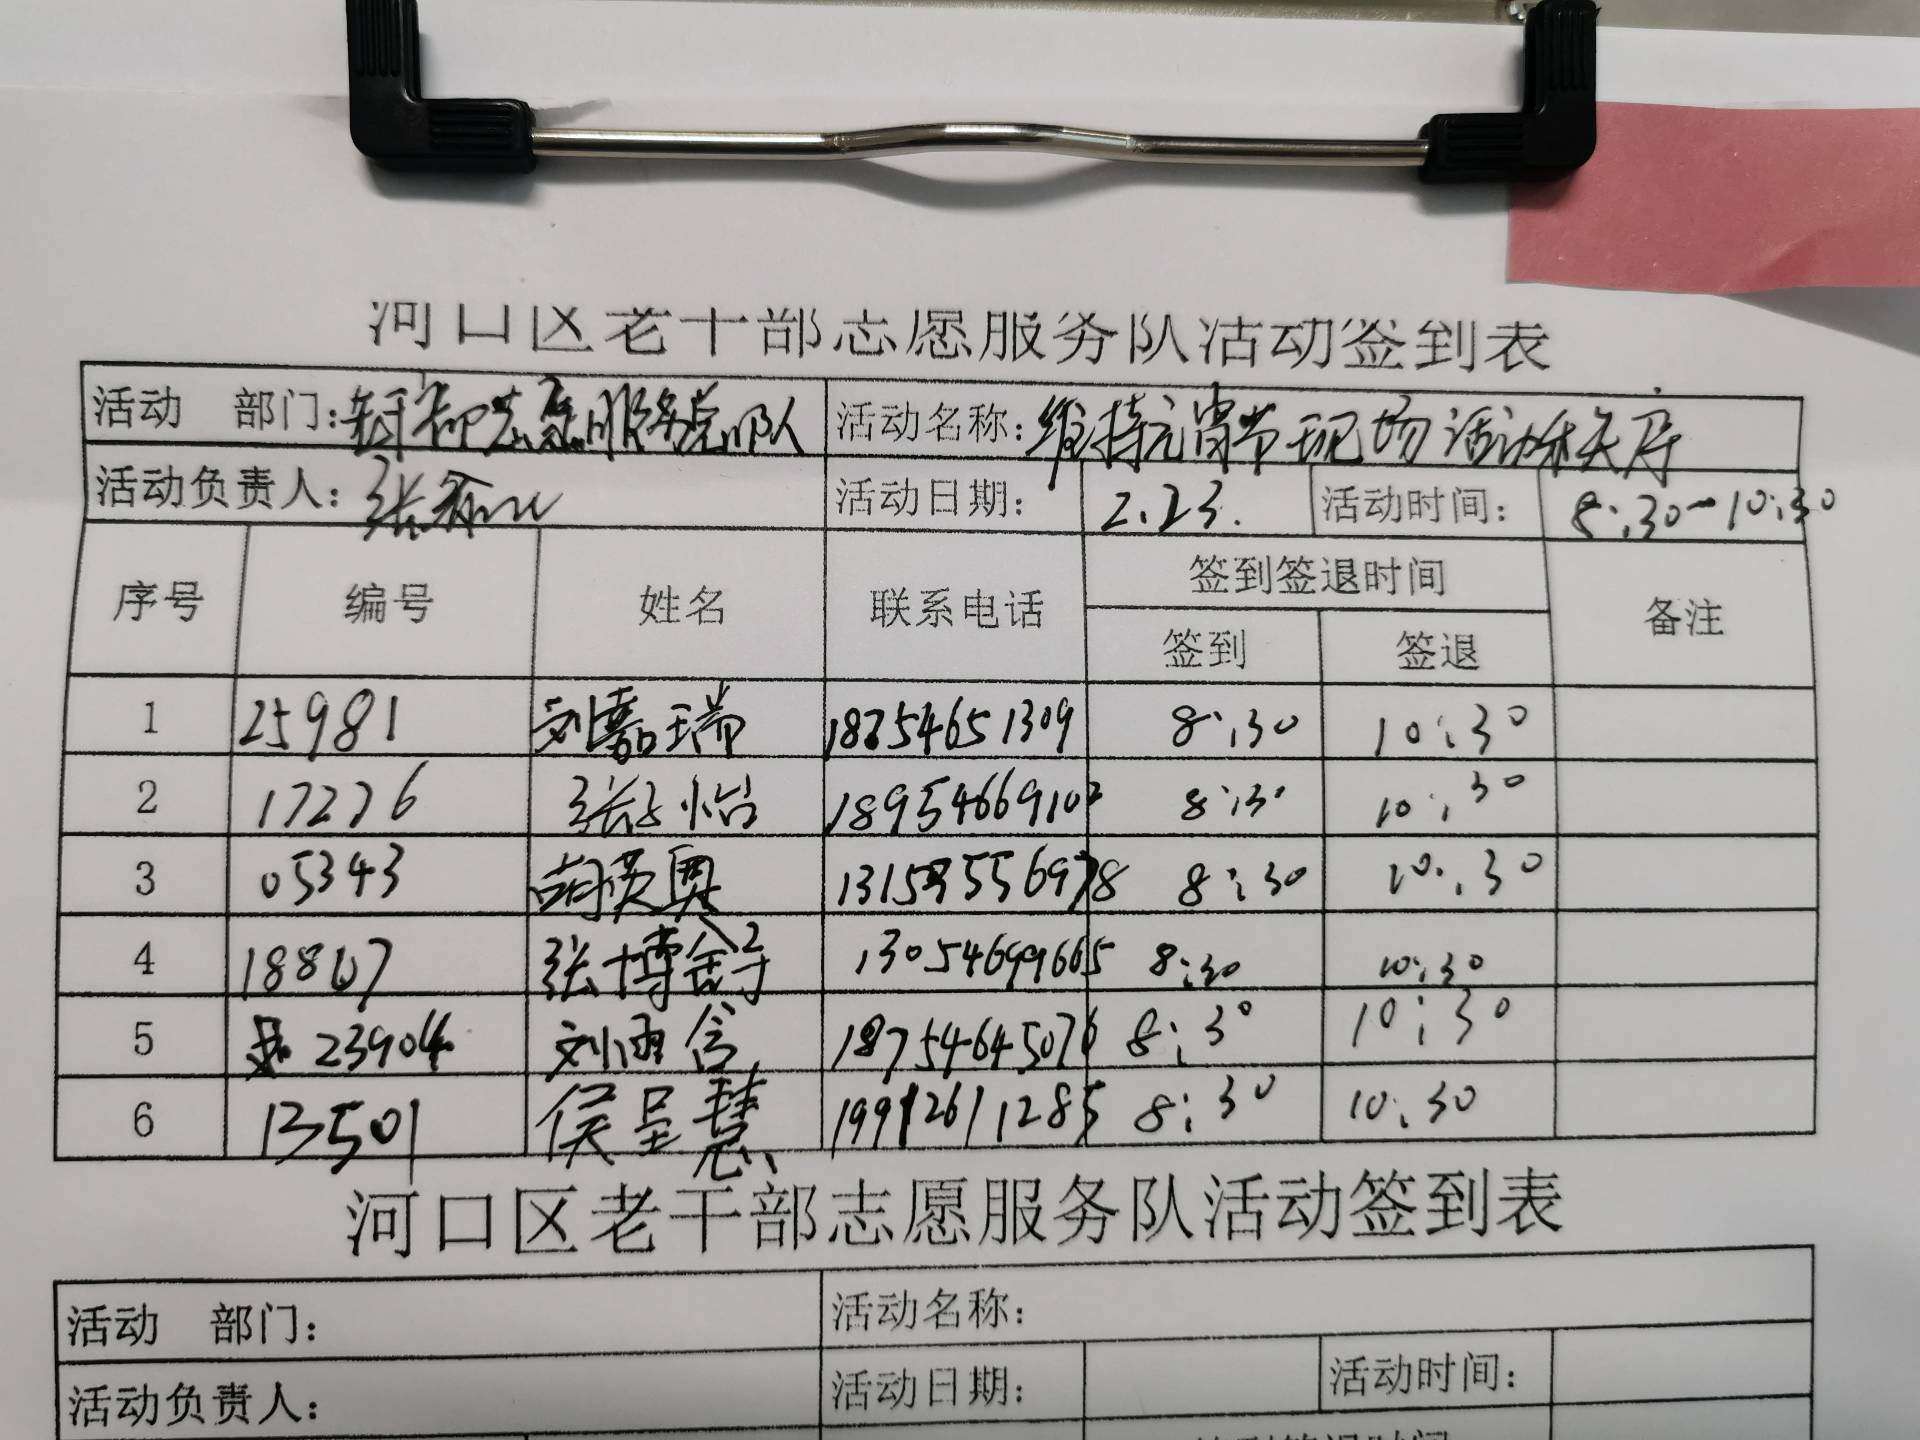 河口区老干部志愿服务队活动签到表
活动 部门：老干部志愿服务总队 活动名称：维持元宵节现场活动秩序
活动负责人：张 活动日期： 2.23. 活动时间： 8:30-10:30
序号 编号 姓名 联系电话 签到签退时间 备注
签到 签退
1 25981 刘嘉瑞 18254651309 8:30 10:30
2 17276 张子怡 18954669102 8:30 10:30
3 05343 胡英奥 8:30 10:30
4 18867 张博 13054699665 8:30 10:30
5 23904 刘雨含 18754645076 8:30 10:30
6 13501 侯呈慧 19912611285 8:30 10:30
河口区老干部志愿服务队活动签到表
活动 部门： 活动名称：
活动负责人： 活动日期： 活动时间：
签到签退时间